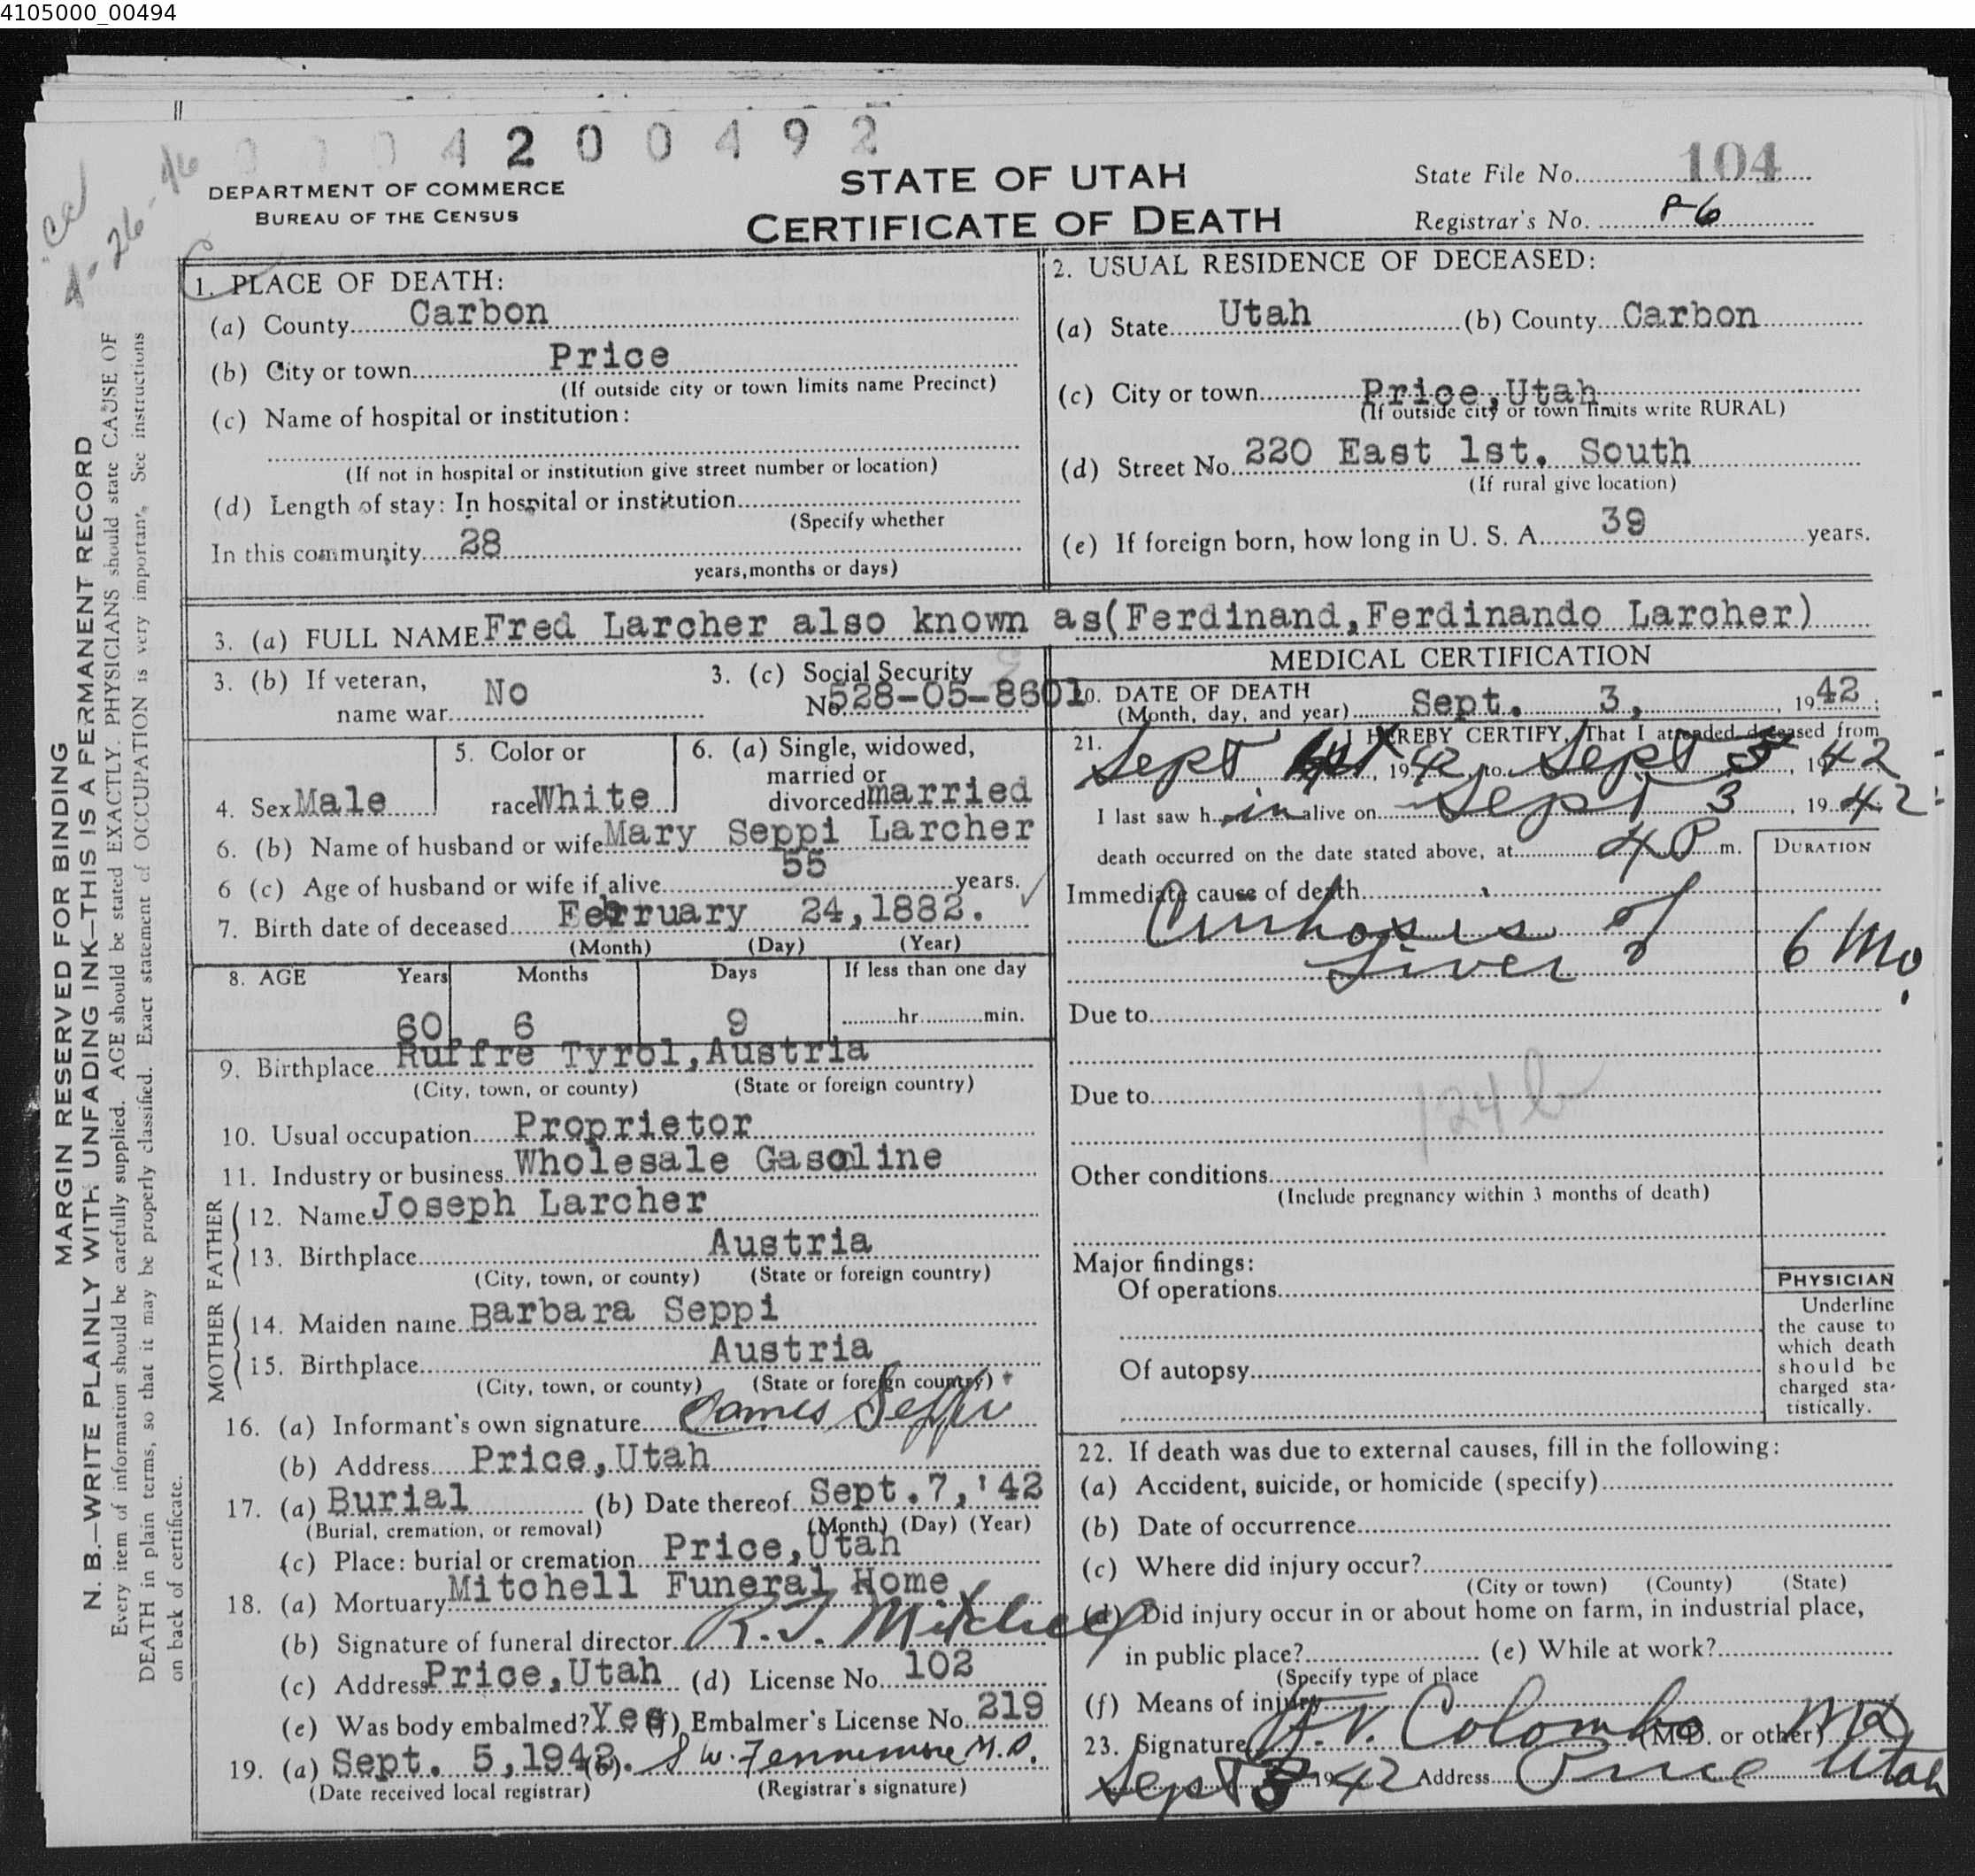 4105000_00494
0004200492
DEPARTMENT OF COMMERCE
BUREAU OF THE CENSUS
STATE OF UTAH
CERTIFICATE OF DEATH
State File No. 104
Registrar's No. P-6
MARGIN RESERVED FOR BINDING
N. B.—WRITE PLAINLY WITH UNFADING INK—THIS IS A PERMANENT RECORD
Every item of information should be carefully supplied. AGE should be stated EXACTLY. PHYSICIANS should state CAUSE OF
DEATH in plain terms, so that it may be properly classified. Exact statement of OCCUPATION is very important. See instructions
on back of certificate.
1. PLACE OF DEATH:
(a) County Carbon
(b) City or town Price
(If outside city or town limits name Precinct)
(c) Name of hospital or institution:
(If not in hospital or institution give street number or location)
(d) Length of stay: In hospital or institution
(Specify whether
In this community 28
years, months or days)
2. USUAL RESIDENCE OF DECEASED:
(a) State Utah (b) County Carbon
(c) City or town Price, Utah
(If outside city or town limits write RURAL)
(d) Street No. 220 East 1st. South
(If rural give location)
(e) If foreign born, how long in U. S. A. 39 years.
3. (a) FULL NAME Fred Larcher also known as(Ferdinand, Ferdinando Larcher)
3. (b) If veteran,
name war No
3. (c) Social Security
No. 528-05-8601
4. Sex Male
5. Color or
race White
6. (a) Single, widowed,
married or
divorced married
6. (b) Name of husband or wife Mary Seppi Larcher
6 (c) Age of husband or wife if alive 55 years.
7. Birth date of deceased February 24, 1882.
(Month) (Day) (Year)
8. AGE Years Months Days If less than one day
60 6 9 hr. min.
9. Birthplace Ruffre Tyrol, Austria
(City, town, or county) (State or foreign country)
10. Usual occupation Proprietor
11. Industry or business Wholesale Gasoline
FATHER
12. Name Joseph Larcher
13. Birthplace Austria
(City, town, or county) (State or foreign country)
MOTHER
14. Maiden name Barbara Seppi
15. Birthplace Austria
(City, town, or county) (State or foreign country)
16. (a) Informant's own signature James Seppi
(b) Address Price, Utah
17. (a) Burial (b) Date thereof Sept. 7, '42
(Burial, cremation, or removal) (Month) (Day) (Year)
(c) Place: burial or cremation Price, Utah
18. (a) Mortuary Mitchell Funeral Home
(b) Signature of funeral director R. J. Mitchell
(c) Address Price, Utah (d) License No. 102
(e) Was body embalmed? Yes (f) Embalmer's License No. 219
19. (a) Sept. 5, 1942 (b) S W. Fennemore M.D.
(Date received local registrar) (Registrar's signature)
MEDICAL CERTIFICATION
20. DATE OF DEATH
(Month, day, and year) Sept. 3, 1942;
21. I HEREBY CERTIFY, That I attended deceased from
Sept 1st, 1942, to Sept 3, 1942
I last saw him alive on Sept 3, 1942
death occurred on the date stated above, at 4 P m.
DURATION
Immediate cause of death
Cirrhosis of
Liver 6 Mo.
Due to
Due to
124b
Other conditions
(Include pregnancy within 3 months of death)
Major findings:
Of operations
Of autopsy
PHYSICIAN
Underline
the cause to
which death
should be
charged sta-
tistically.
22. If death was due to external causes, fill in the following:
(a) Accident, suicide, or homicide (specify)
(b) Date of occurrence
(c) Where did injury occur?
(City or town) (County) (State)
(d) Did injury occur in or about home on farm, in industrial place,
in public place? (e) While at work?
(Specify type of place
(f) Means of injury
23. Signature Colombo MD (M.D. or other)
Sept 3 1942 Address Price Utah